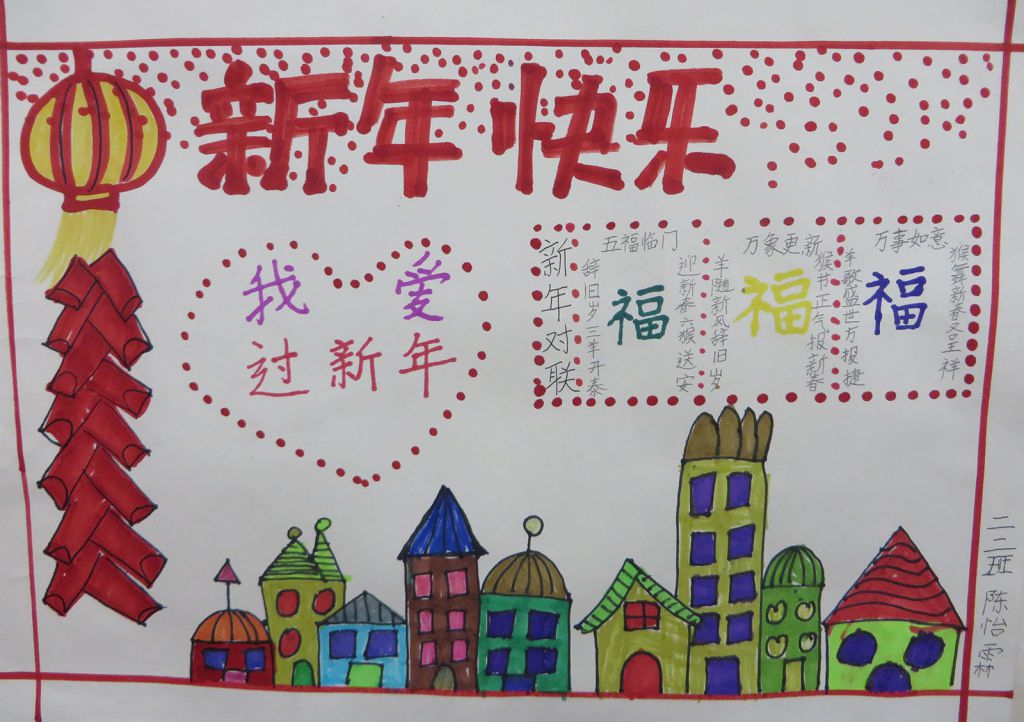 新年快乐
我爱
过新年
新年对联
五福临门
辞旧岁三羊开泰
福
迎新春六猴送安
万象更新
羊随新风辞旧岁
福
猴节正气报新春
万事如意
羊歌盛世方报捷
福
猴舞新春又呈祥
二二班 陈怡霖